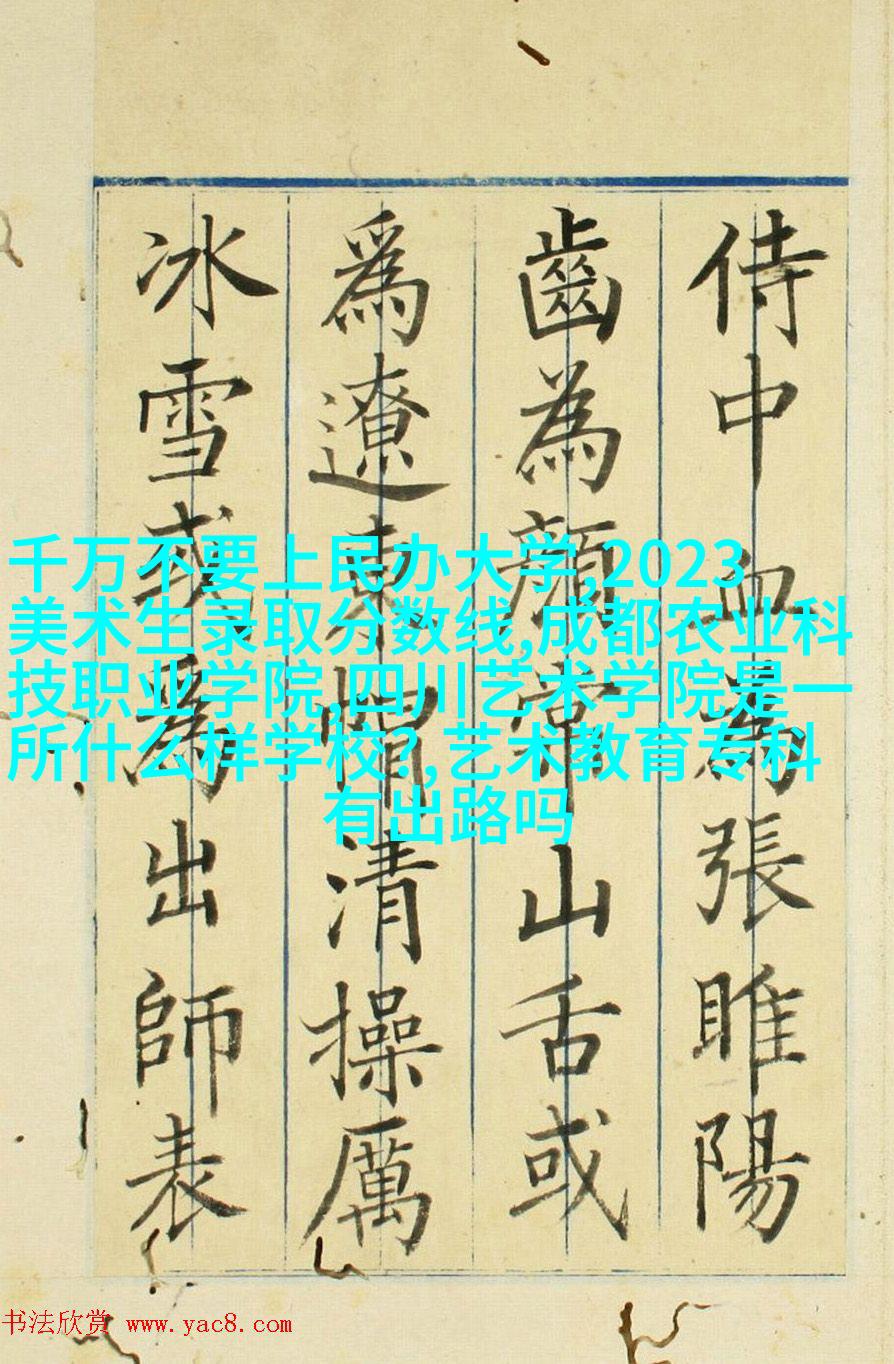 侍中血為張睢陽
齒為顏常山舌或
爲遼東帽清操厲
冰雪或爲出師表
千万不要上民办大学,2023
美术生录取分数线,成都农业科
技职业学院,四川艺术学院是一
所什么样学校?,艺术教育专科
有出路吗
书法欣赏 www.yac8.com